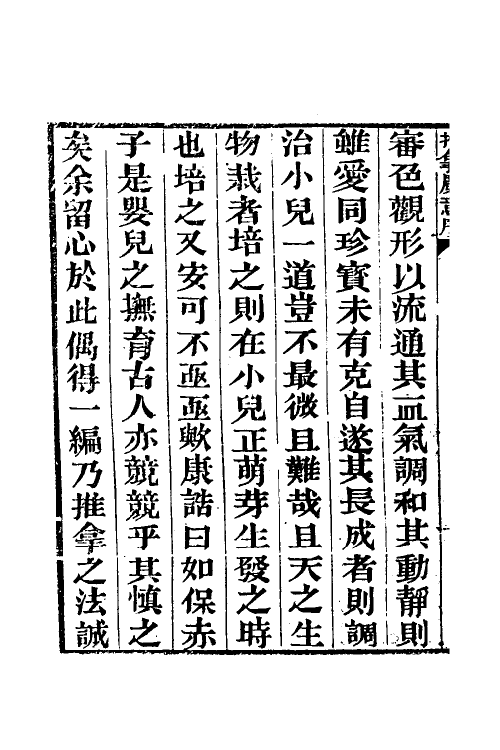 審色觀形以流通其血氣調和其動靜則
雖愛同珍寶未有克自遂其長成者則調
治小兒一道豈不最微且難哉且天之生
物栽者培之則在小兒正萌芽生發之時
也培之又安可不亟亟歟康誥曰如保赤
子是嬰兒之撫育古人亦競競乎其慎之
矣余留心於此偶得一編乃推拿之法誠